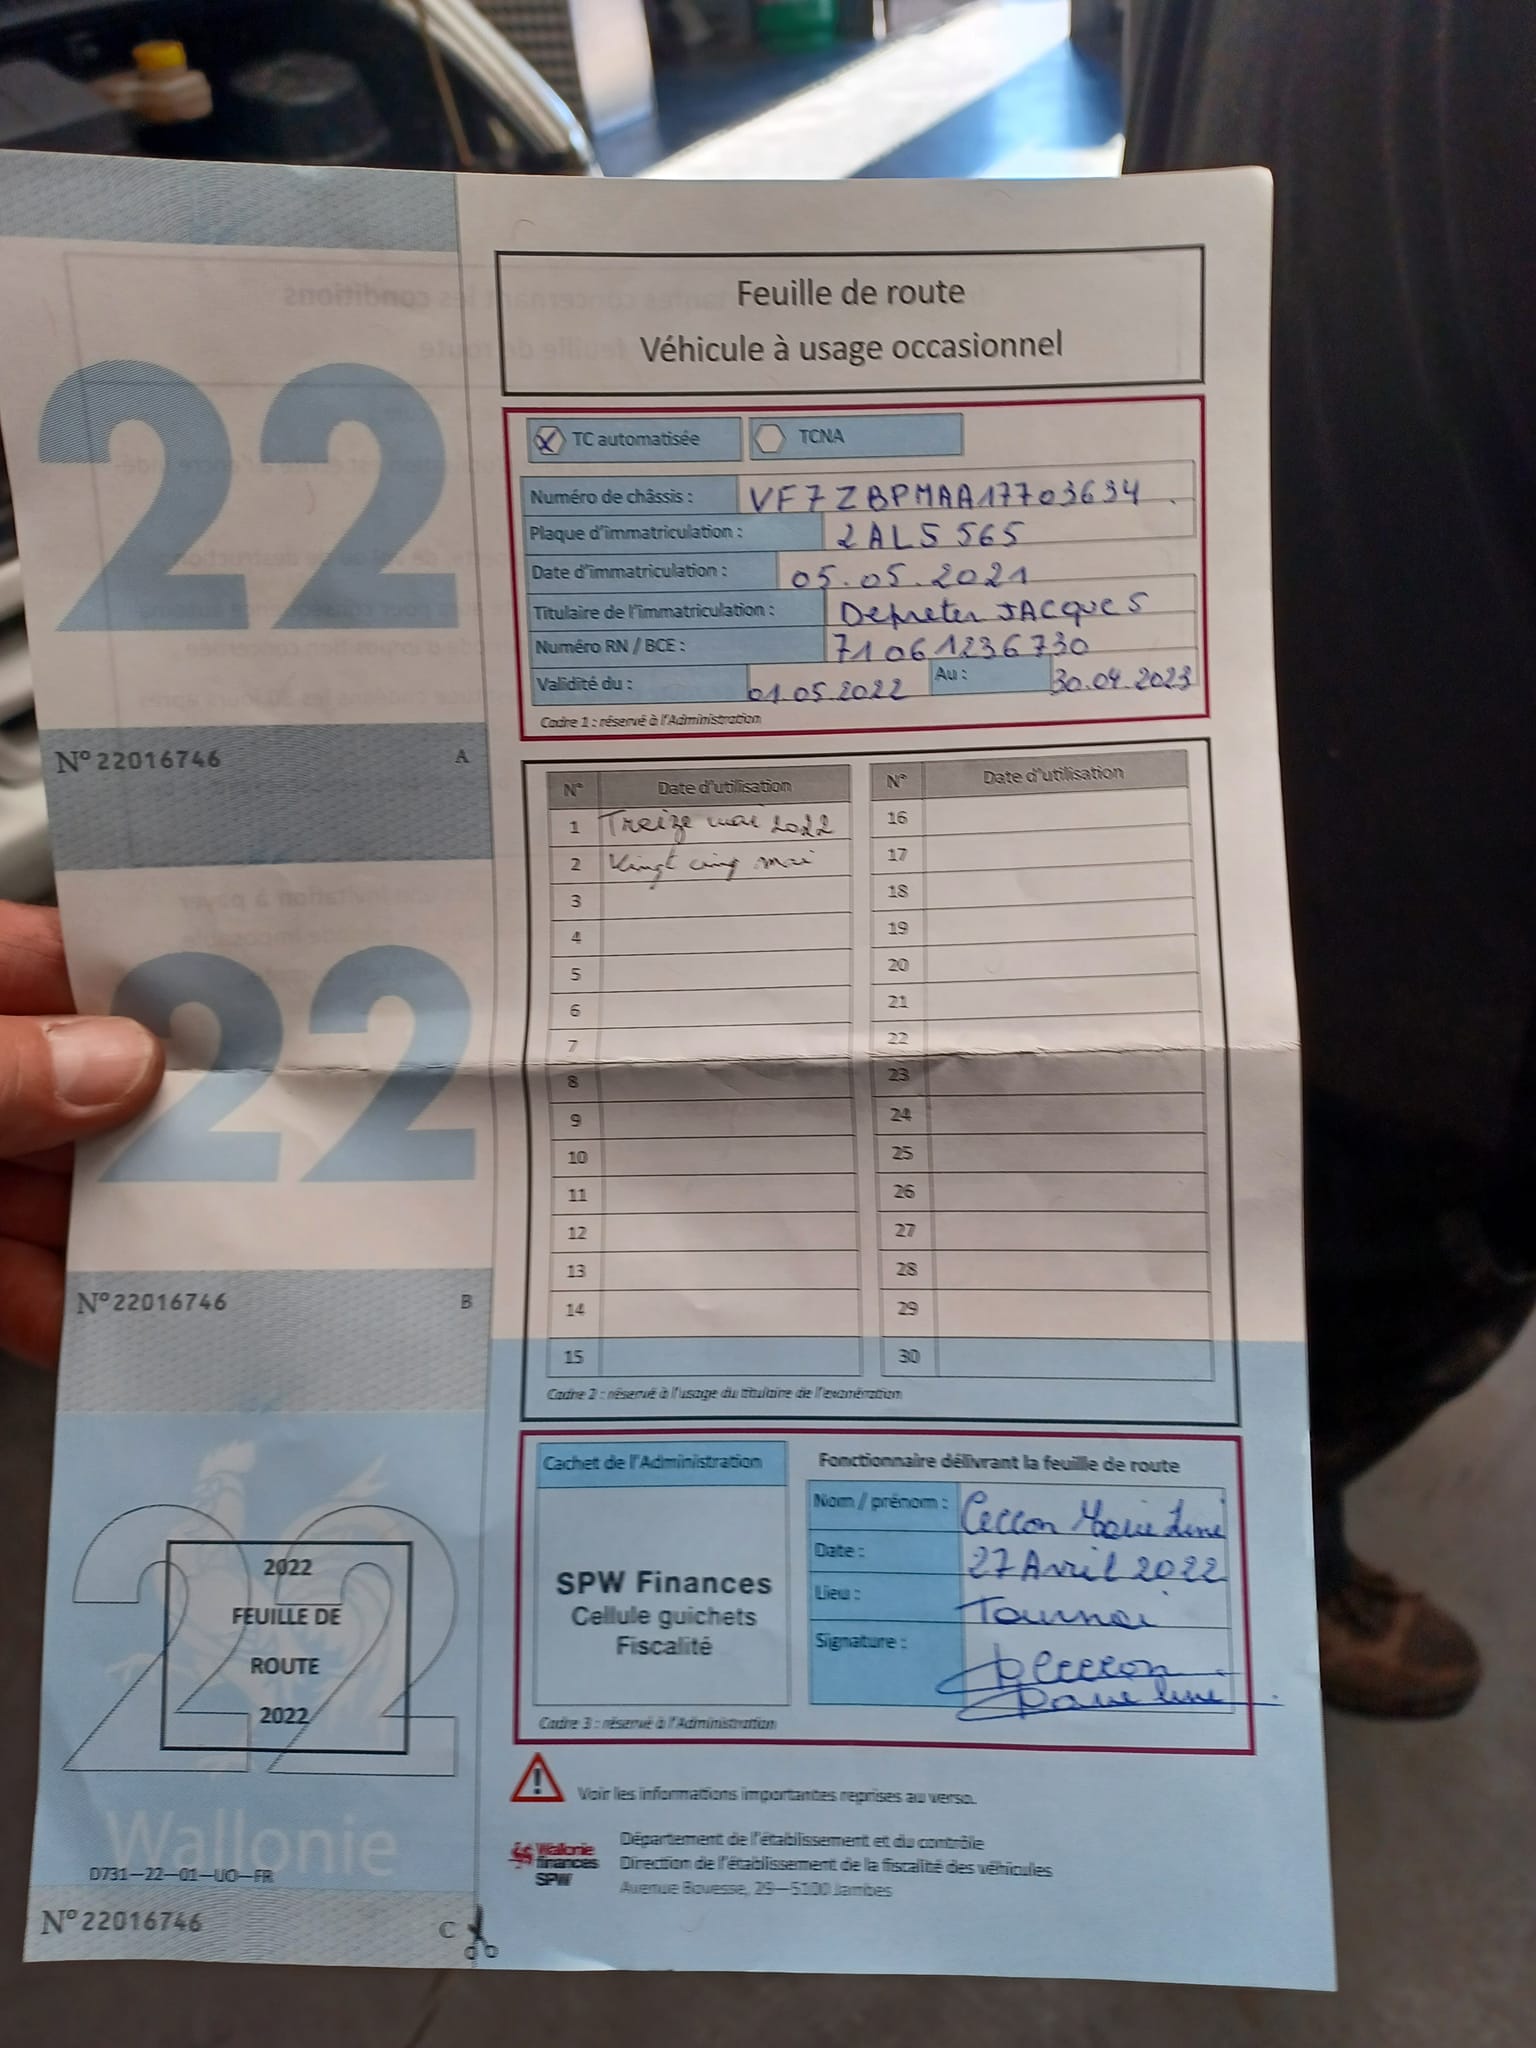 22
Nº 22016746 A
22
Nº 22016746 B
22
2022
FEUILLE DE
ROUTE
2022
Wallonie
D731-22-01-UO-FR
Nº 22016746 C
Feuille de route
Véhicule à usage occasionnel
X TC automatisée TCNA
Numéro de châssis : VF7ZBPMAA17703634
Plaque d'immatriculation : 2ALS 565
Date d'immatriculation : 05.05.2021
Titulaire de l'immatriculation : Depreter JACQUES
Numéro RN / BCE : 71061236730
Validité du : 01.05.2022 Au : 30.04.2023
Cadre 1 : réservé à l'Administration
N° Date d'utilisation N° Date d'utilisation
1 Treize mai 2022 16
2 Vingt cinq mai 17
3 18
4 19
5 20
6 21
7 22
8 23
9 24
10 25
11 26
12 27
13 28
14 29
15 30
Cadre 2 : réservé à l'usage du titulaire de l'exonération
Cachet de l'Administration
SPW Finances
Cellule guichets
Fiscalité
Fonctionnaire délivrant la feuille de route
Nom / prénom : Ceccon Marie Line
Date : 27 Avril 2022
Lieu : Tournai
Signature :
Cadre 3 : réservé à l'Administration
Voir les informations importantes reprises au verso.
Wallonie
finances
SPW
Département de l'établissement et du contrôle
Direction de l'établissement de la fiscalité des véhicules
Avenue Bovesse, 29—5100 Jambes